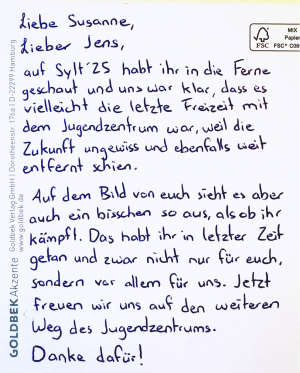 Liebe Susanne,
Lieber Jens,
auf Sylt'25 habt ihr in die Ferne
geschaut und uns war klar, dass es
vielleicht die letzte Freizeit mit
dem Jugendzentrum war, weil die
Zukunft ungewiss und ebenfalls weit
entfernt schien.
Auf dem Bild von euch sieht es aber
auch ein bisschen so aus, als ob ihr
kämpft. Das habt ihr in letzter Zeit
getan und zwar nicht nur für euch,
sondern vor allem für uns. Jetzt
freuen wir uns auf den weiteren
Weg des Jugendzentrums.
Danke dafür!
GOLDBEK Akzente Goldbek Verlag GmbH | Dorotheenstr. 176a | D-22299 Hamburg
www.goldbek.de
FSC
MIX
Papier
FSC® C08